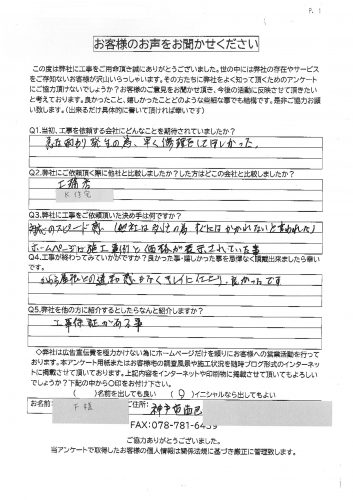 P. 1
お客様のお声をお聞かせください
この度は弊社に工事をご用命頂き誠にありがとうございました。世の中には弊社の存在やサービス
をご存知ないお客様が沢山いらっしゃいます。その方たちに弊社をよく知って頂くためのアンケート
にご協力頂けないでしょうか？お客様のご意見をお聞かせ頂き、今後の活動に反映させて頂きたい
と考えております。良かったこと、嬉しかったことどのような些細な事でも結構です。是非ご協力お願
い致します。(出来るだけ具体的に書いて頂ければ幸いです)
Q1.当初、工事を依頼する会社にどんなことを期待されていましたか？
雨漏り発生の為、早く修理をしてほしかった。
Q2.弊社にご依頼頂く際に他社と比較しましたか？した方はどこの会社と比較しましたか？
工務店
K住宅
Q3.弊社に工事をご依頼頂いた決め手は何ですか？
対応のスピード感 (他社は だけの為 にはかかれないと言われた)
ホームページに施工事例と価格が表示されていた事
Q4.工事が終わってみていかがですか？良かった事・嬉しかった事を忌憚なく頂戴出来ましたら幸い
です。
との違和感もなくキレイに仕上り、良かったです
Q5.弊社を他の方に紹介するとしたらなんと紹介しますか？
工事保証がある事
◇弊社は広告宣伝費を極力かけない為にホームページだけを頼りにお客様への営業活動を行って
おります。本アンケート用紙またはお客様宅の調査風景や施工状況を随時ブログ形式のインターネッ
トに掲載させて頂いております。上記内容をインターネットや印刷物に掲載させて頂いてもよろしい
でしょうか？下記の中から〇印をお付け下さい。
( )名前を出しても良い (〇)イニシャルなら出してもよい
お名前: F様 ご住所: 神戸市西区
FAX:078-781-6439
ご協力ありがとうございました。
当アンケートで取得したお客様の個人情報は関係法規に基づき厳正に管理致します。